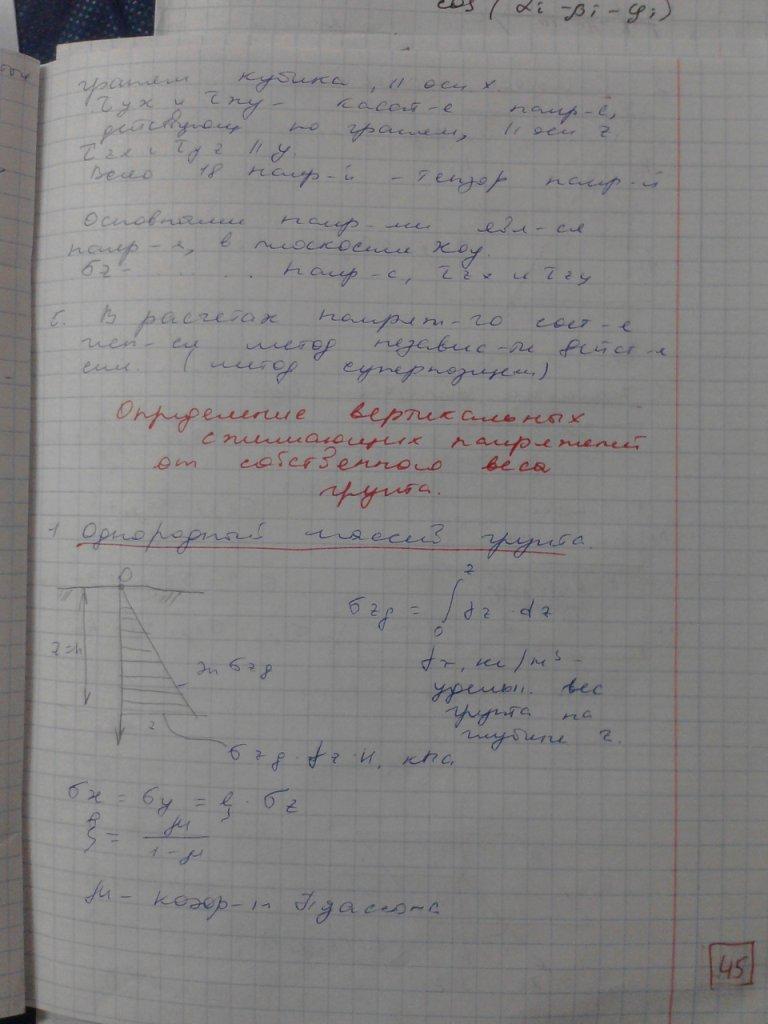 cos (αi - βi - φi)
граням кубика, || оси х.
τyx и τxy - касат-е напр-е,
действующ по граням, || оси z.
τzx и τyz || y.
Всего 18 напр-й - тензор напр-й
Основными напр-ми явл-ся
напр-я, в плоскости xoy.
σz - ..... напр-е, τzx и τzy
5. В расчетах напряж-го сост-е
исп-ся метод независ-ти дейст-я
сил. (метод суперпозиции)
Определение вертикальных
сжимающих напряжений
от собственного веса
грунта.
1 Однородный массив грунта.
0
z
σzg = ∫ γz · dz
0
z=h
эп σzg
γz, кн/м³ -
удельн. вес
грунта на
глубине z.
z
σzg · γz · H, кПа
σx = σy = ξ · σz
ξ = μ / 1-μ
μ - коэф-т Пуассона
45